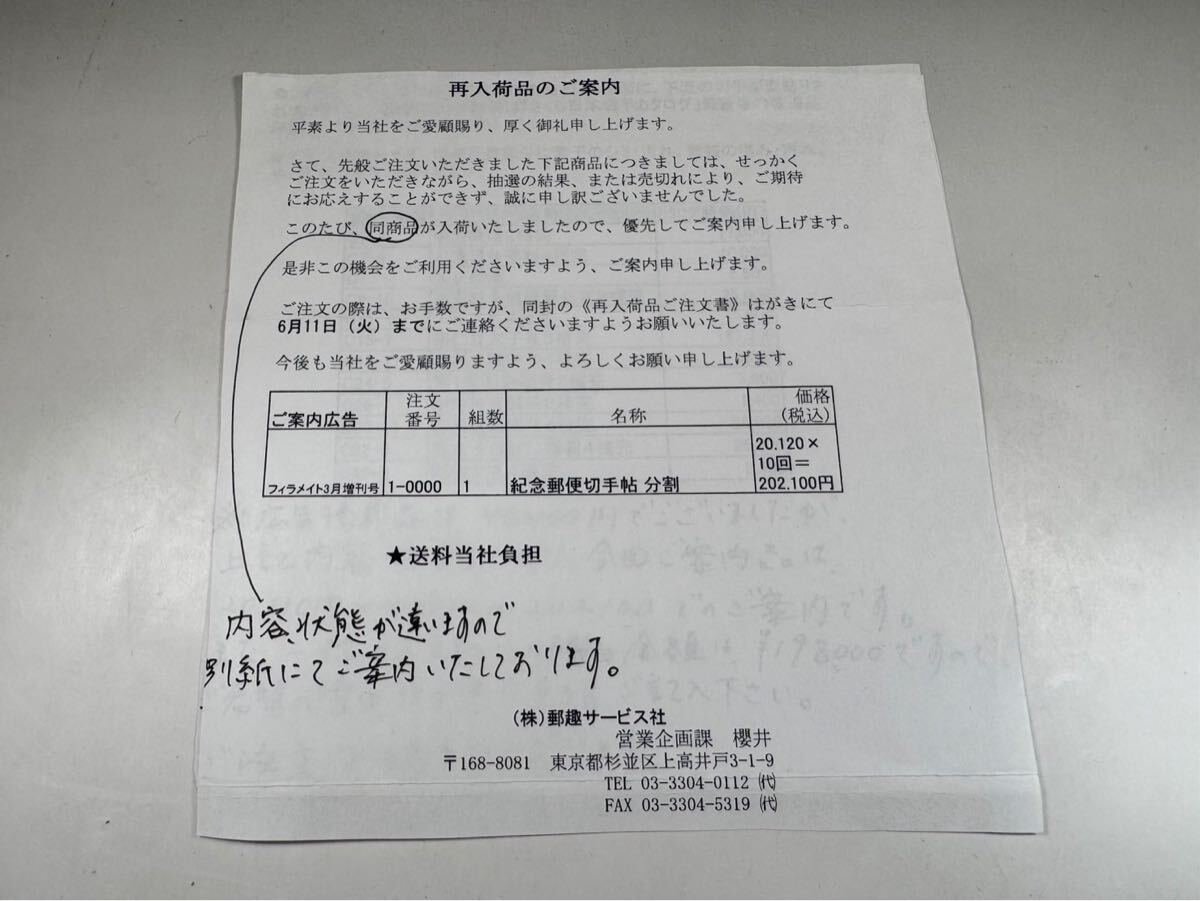 再入荷品のご案内
平素より当社をご愛顧賜り、厚く御礼申し上げます。
さて、先般ご注文いただきました下記商品につきましては、せっかく
ご注文をいただきながら、抽選の結果、または売切れにより、ご期待
にお応えすることができず、誠に申し訳ございませんでした。
このたび、同商品が入荷いたしましたので、優先してご案内申し上げます。
是非この機会をご利用くださいますよう、ご案内申し上げます。
ご注文の際は、お手数ですが、同封の《再入荷品ご注文書》はがきにて
6月11日（火）までにご連絡くださいますようお願いいたします。
今後も当社をご愛顧賜りますよう、よろしくお願い申し上げます。
ご案内広告 注文番号 組数 名称 価格(税込)
フィラメイト3月増刊号 1-0000 1 紀念郵便切手帖 分割 20.120×10回＝202.100円
★送料当社負担
内容、状態が違いますので
別紙にてご案内いたしております。
（株）郵趣サービス社
営業企画課 櫻井
〒168-8081 東京都杉並区上高井戸3-1-9
TEL 03-3304-0112 ㈹
FAX 03-3304-5319 ㈹